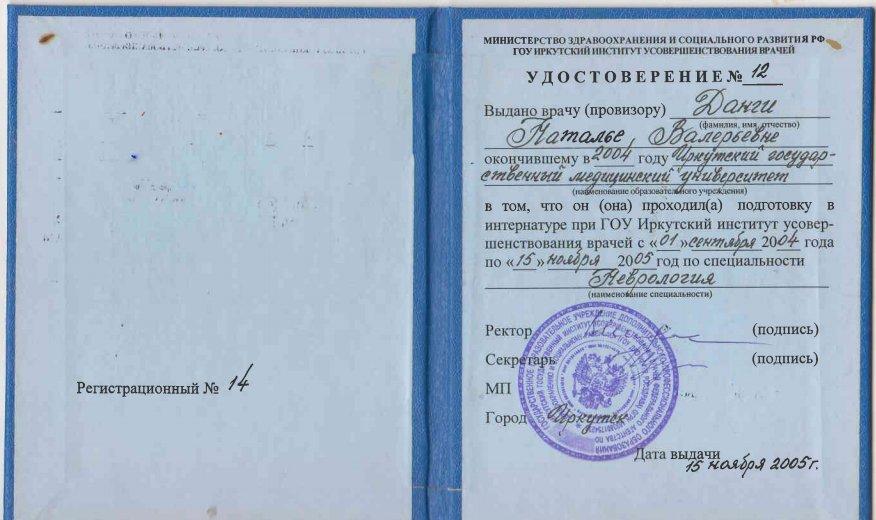 Регистрационный № 14
МИНИСТЕРСТВО ЗДРАВООХРАНЕНИЯ И СОЦИАЛЬНОГО РАЗВИТИЯ РФ
ГОУ ИРКУТСКИЙ ИНСТИТУТ УСОВЕРШЕНСТВОВАНИЯ ВРАЧЕЙ
УДОСТОВЕРЕНИЕ № 12
Выдано врачу (провизору) Данги
(фамилия, имя, отчество)
Наталье Валерьевне
окончившему в 2004 году Иркутский государ-
ственный медицинский университет
(наименование образовательного учреждения)
в том, что он (она) проходил(а) подготовку в
интернатуре при ГОУ Иркутский институт усовер-
шенствования врачей с «01» сентября 2004 года
по «15» ноября 2005 год по специальности
Неврология
(наименование специальности)
Ректор (подпись)
Секретарь (подпись)
МП
Город Иркутск
Дата выдачи
15 ноября 2005г.